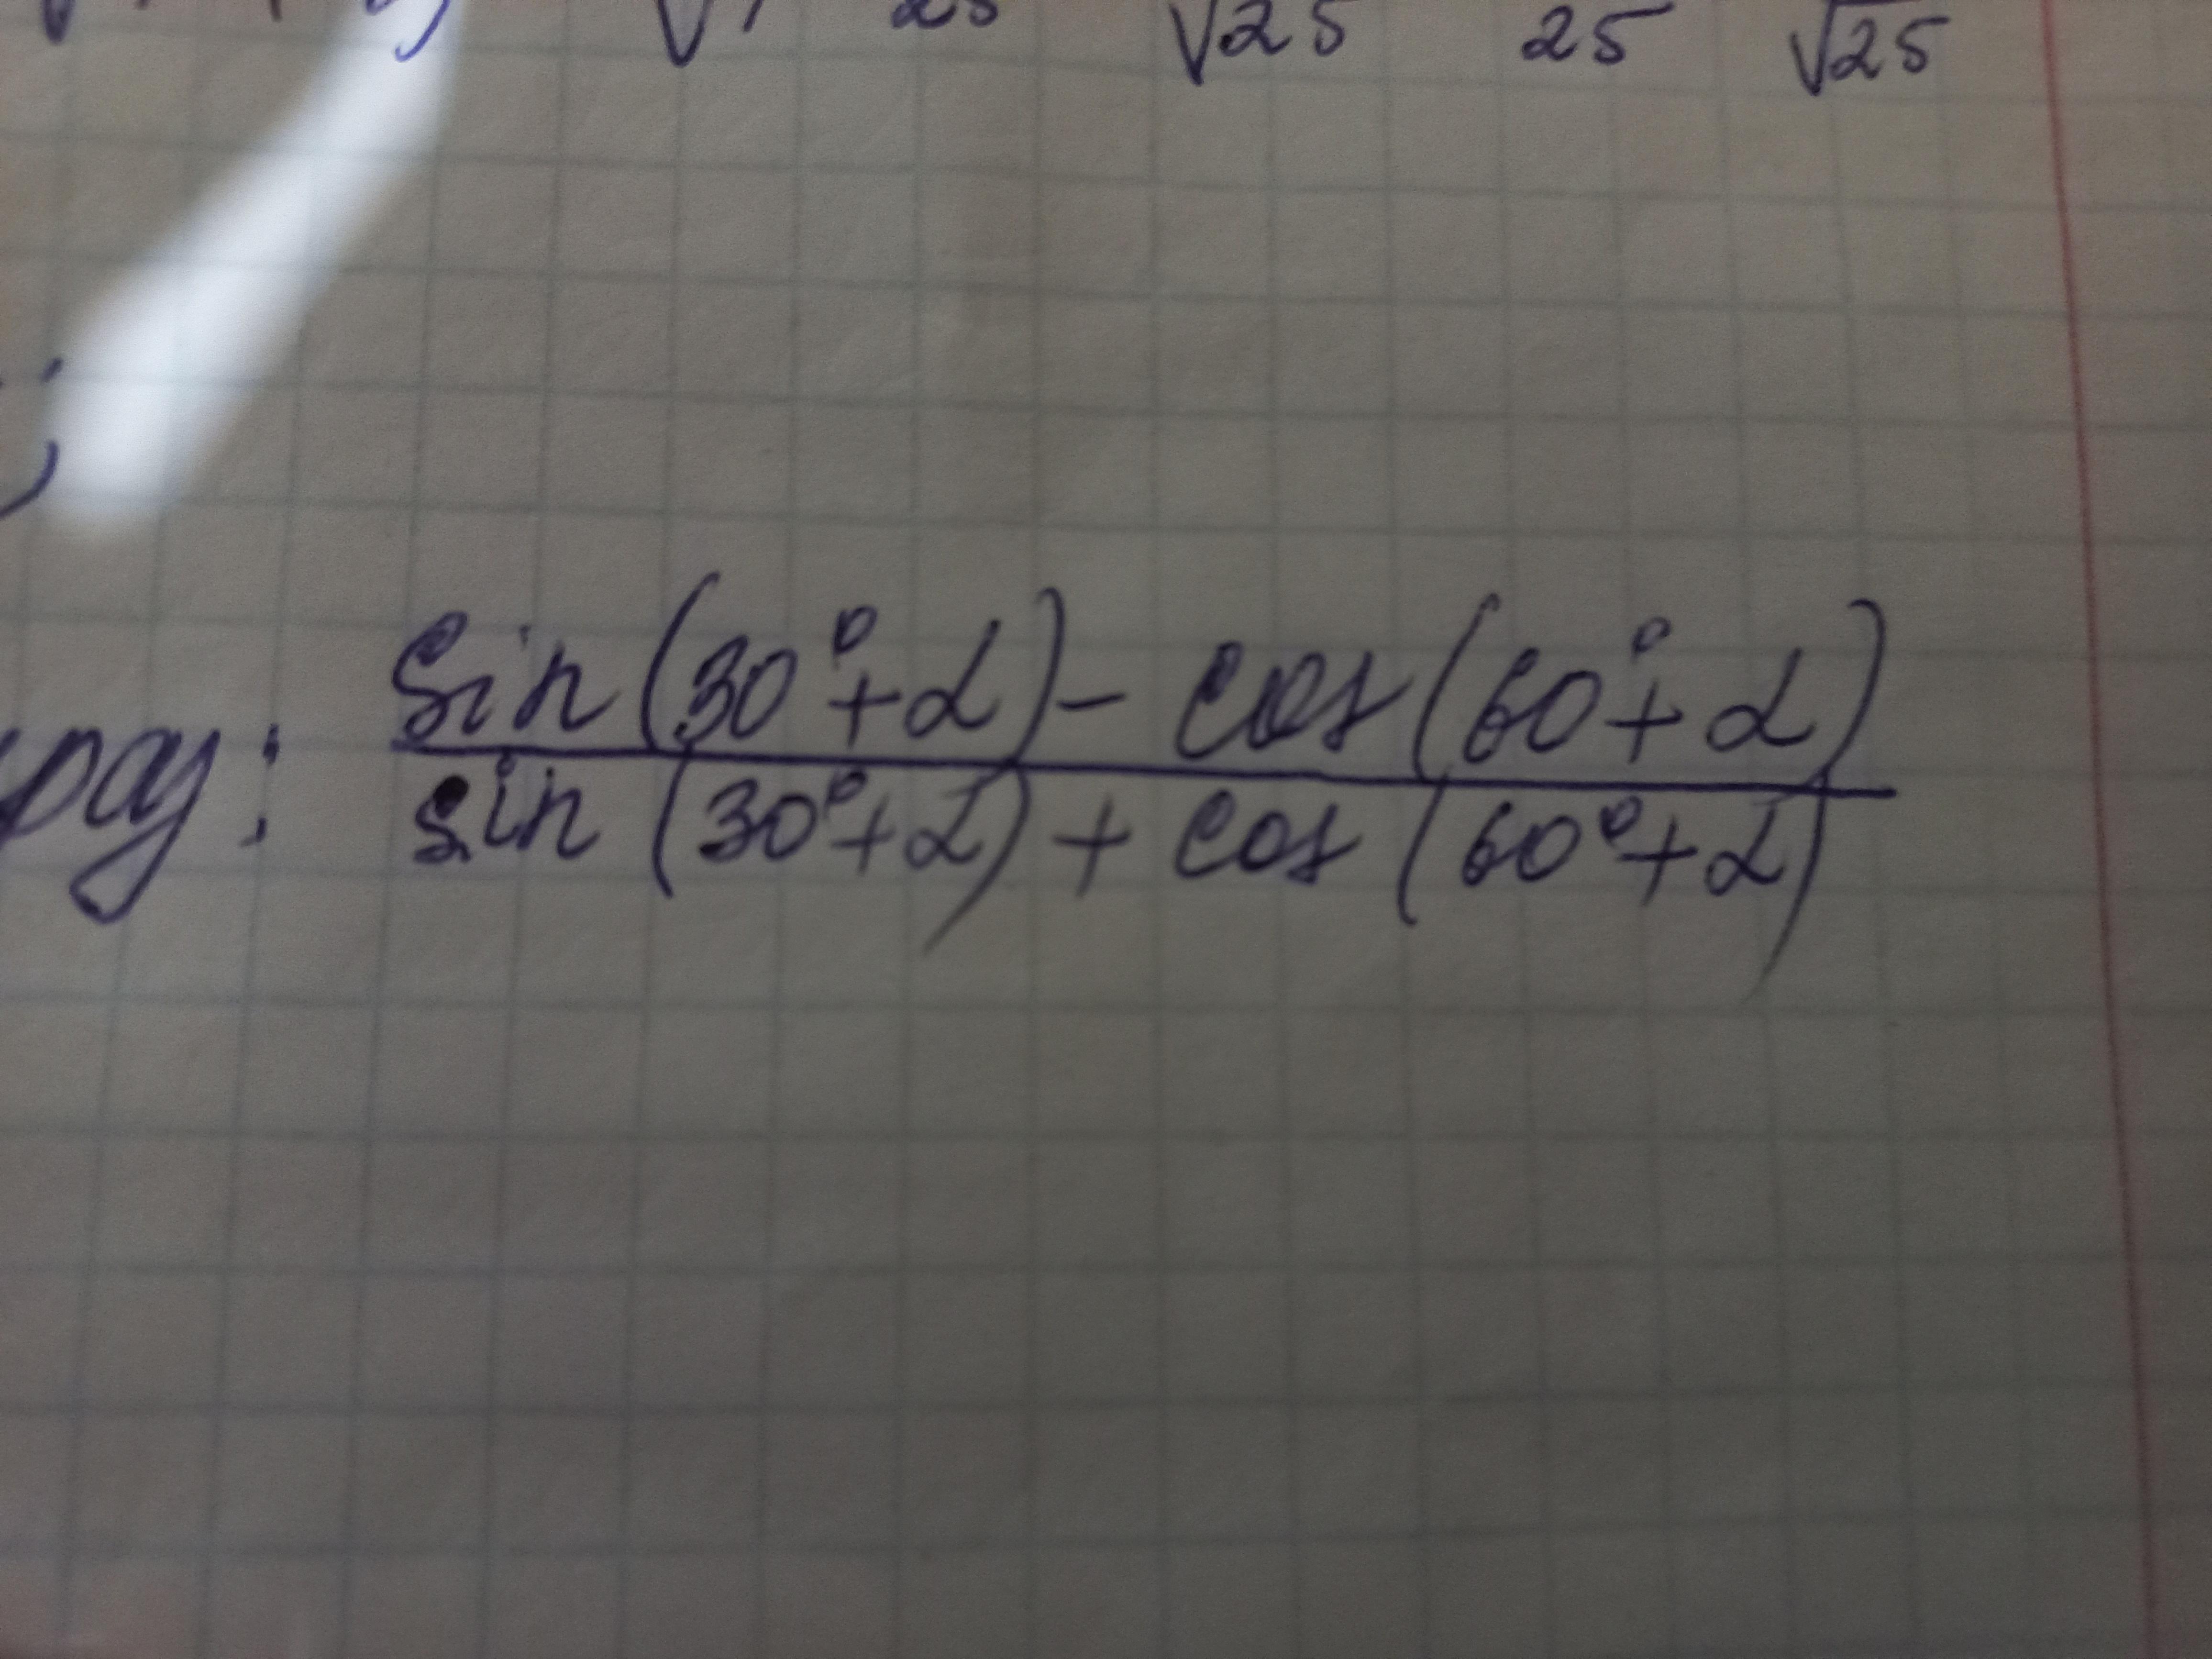 25 √25 25 √25
sin(30°+α) - cos(60°+α)
sin(30°+α) + cos(60°+α)